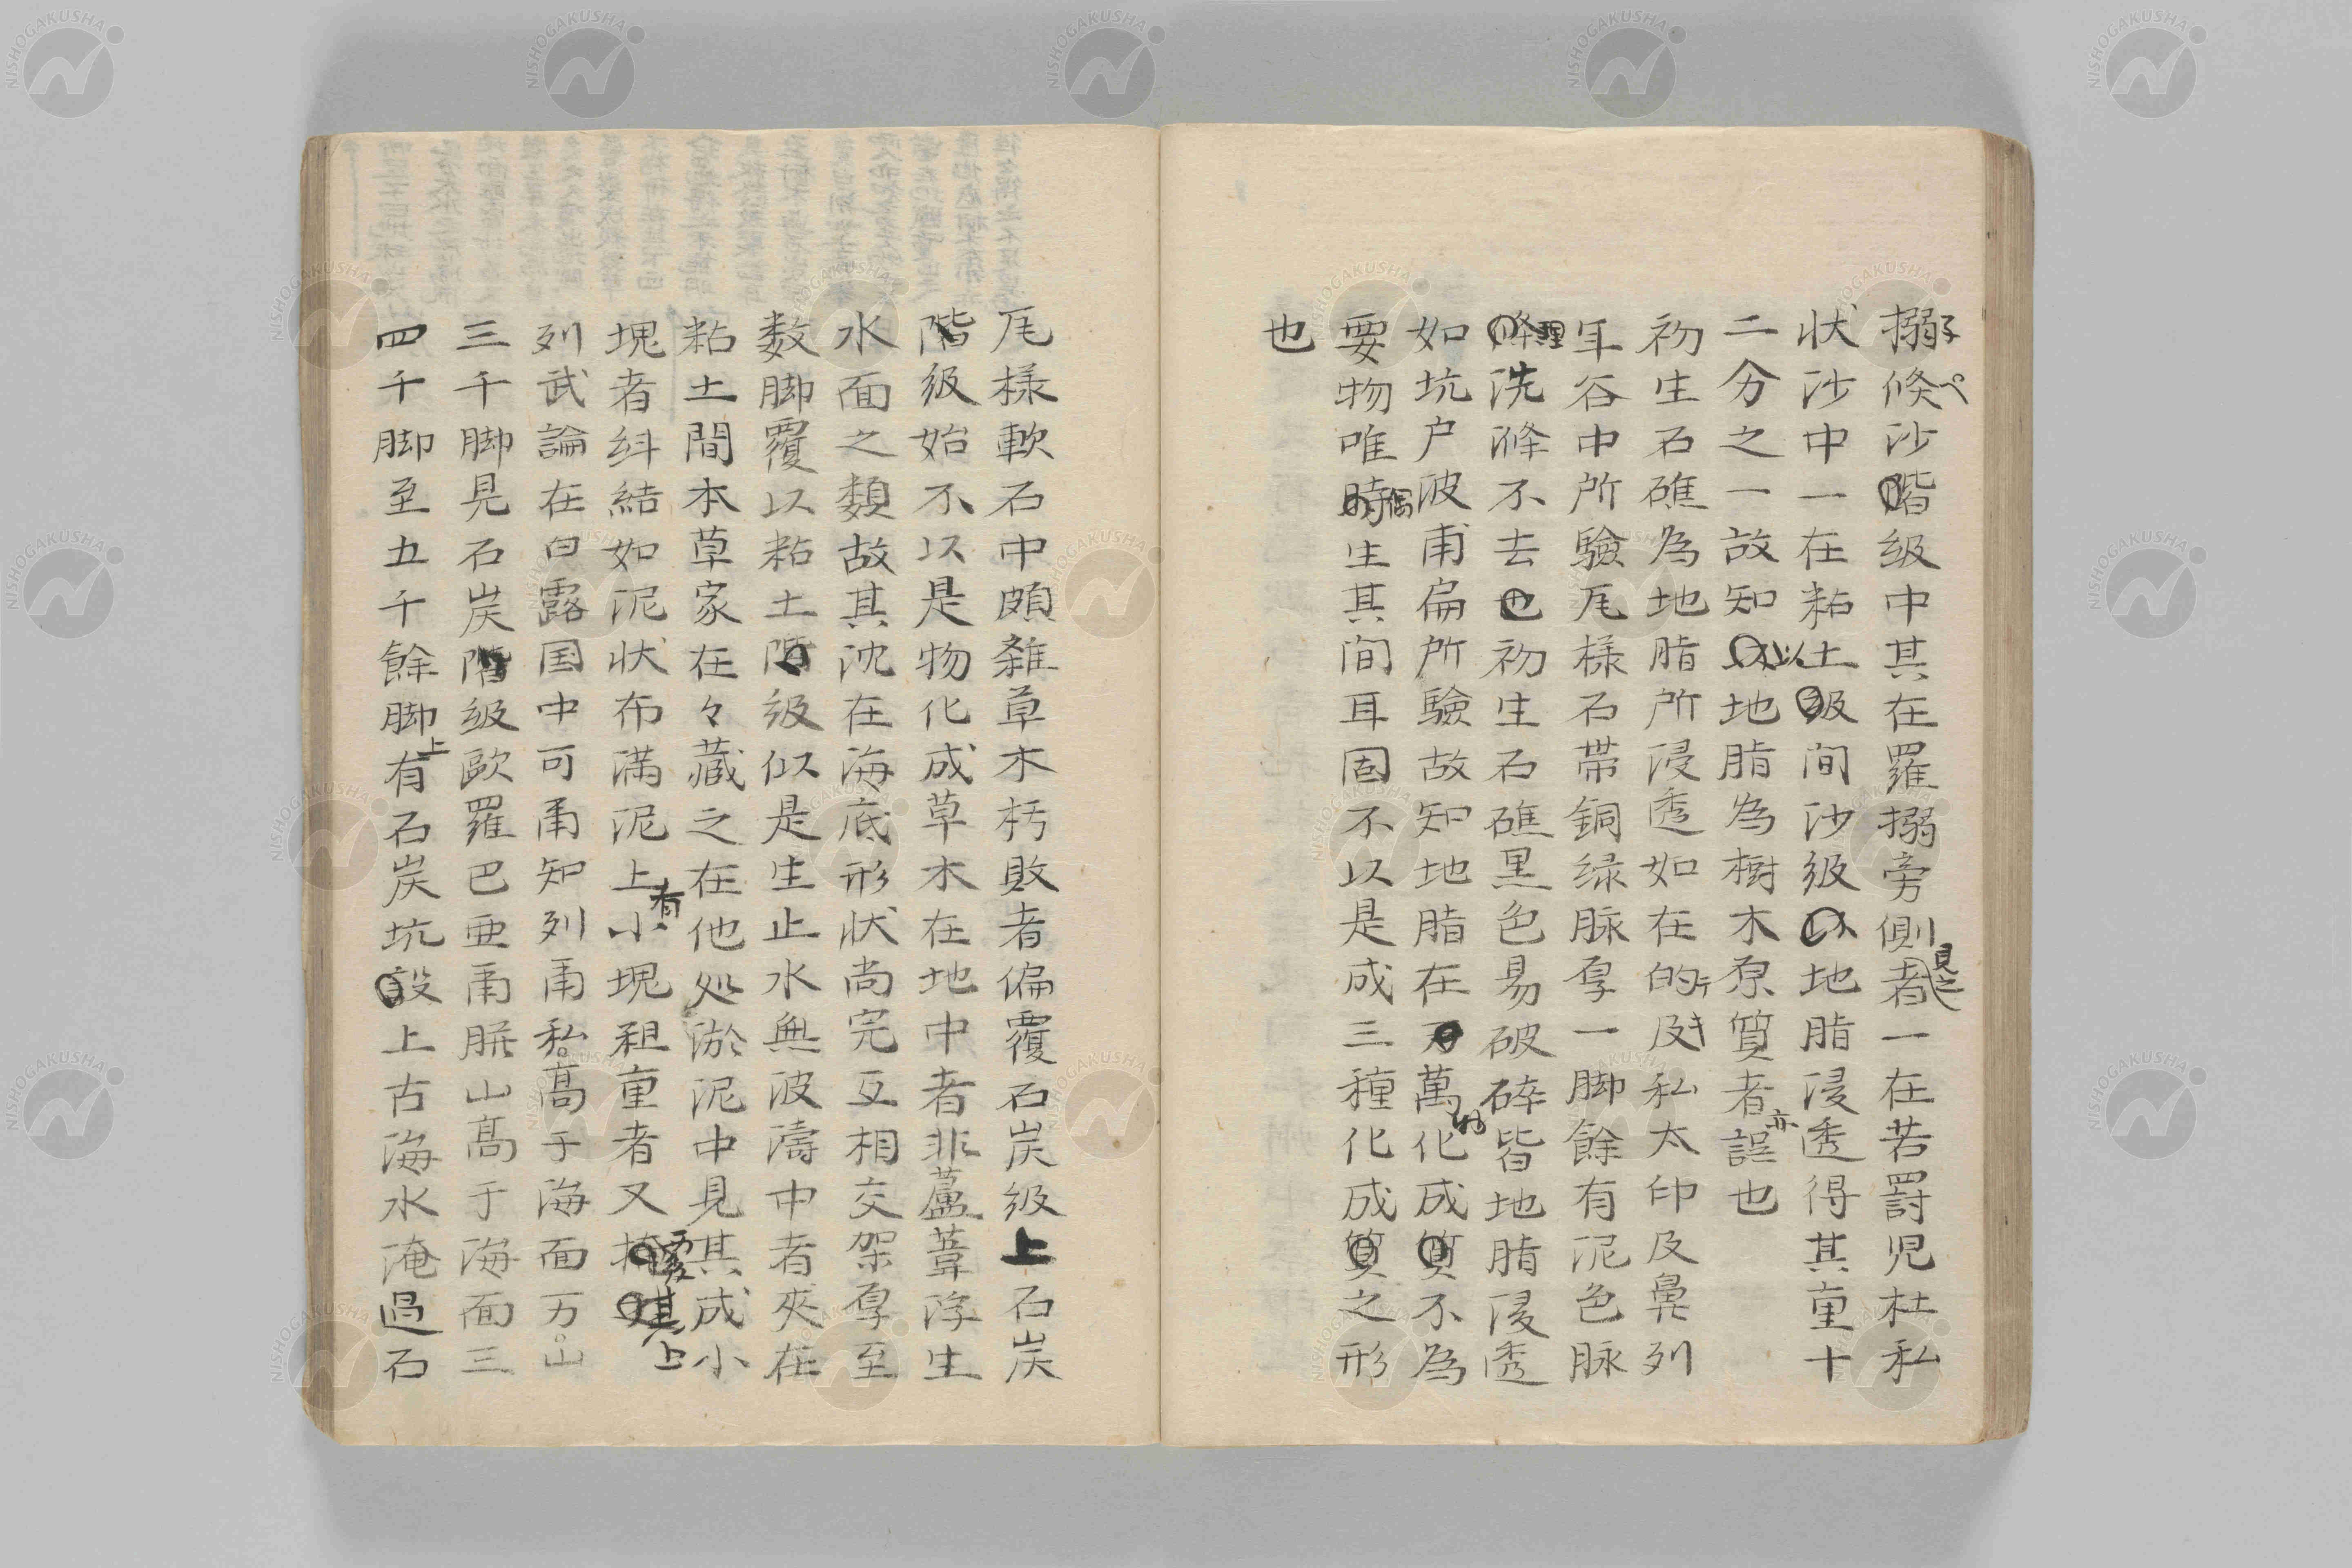 搦條沙階级中其在羅搦旁側者一在若罸児杜私
状沙中一在粘土级间沙级以地脂浸透得其重十
二分之一故知以地脂為樹木原質者亦誤也
初生石礁為地脂所浸透如在的及私太印及鼻列
年谷中所驗瓦様石帯銅绿脉厚一脚餘有泥色脉
理洗滌不去也初生石礁黒色易破碎皆地脂浸透
如坑户波甫扁所驗故知地脂在萬化成質不為
要物唯偶生其间耳固不以是成三種化成質之形
也
瓦様軟石中頗雑草木朽敗者偏覆石炭级上石炭
階级始不以是物化成草木在地中者非蘆葦浮生
水面之類故其沈在海底形状尚完互相交架厚至
数脚覆以粘土階级似是生止水無波濤中者夾在
粘土間本草家在々藏之在他処淤泥中見其成小
塊者糾結如泥状布満泥上有小塊粗重者又覆其上
列武論在白露国中可甫知列甫私高于海面万山
三千脚見石炭階级歐羅巴亜甫腁山髙于海面三
四千脚至五千餘脚上有石炭坑設上古海水淹過石
NISHOGAKUSHA